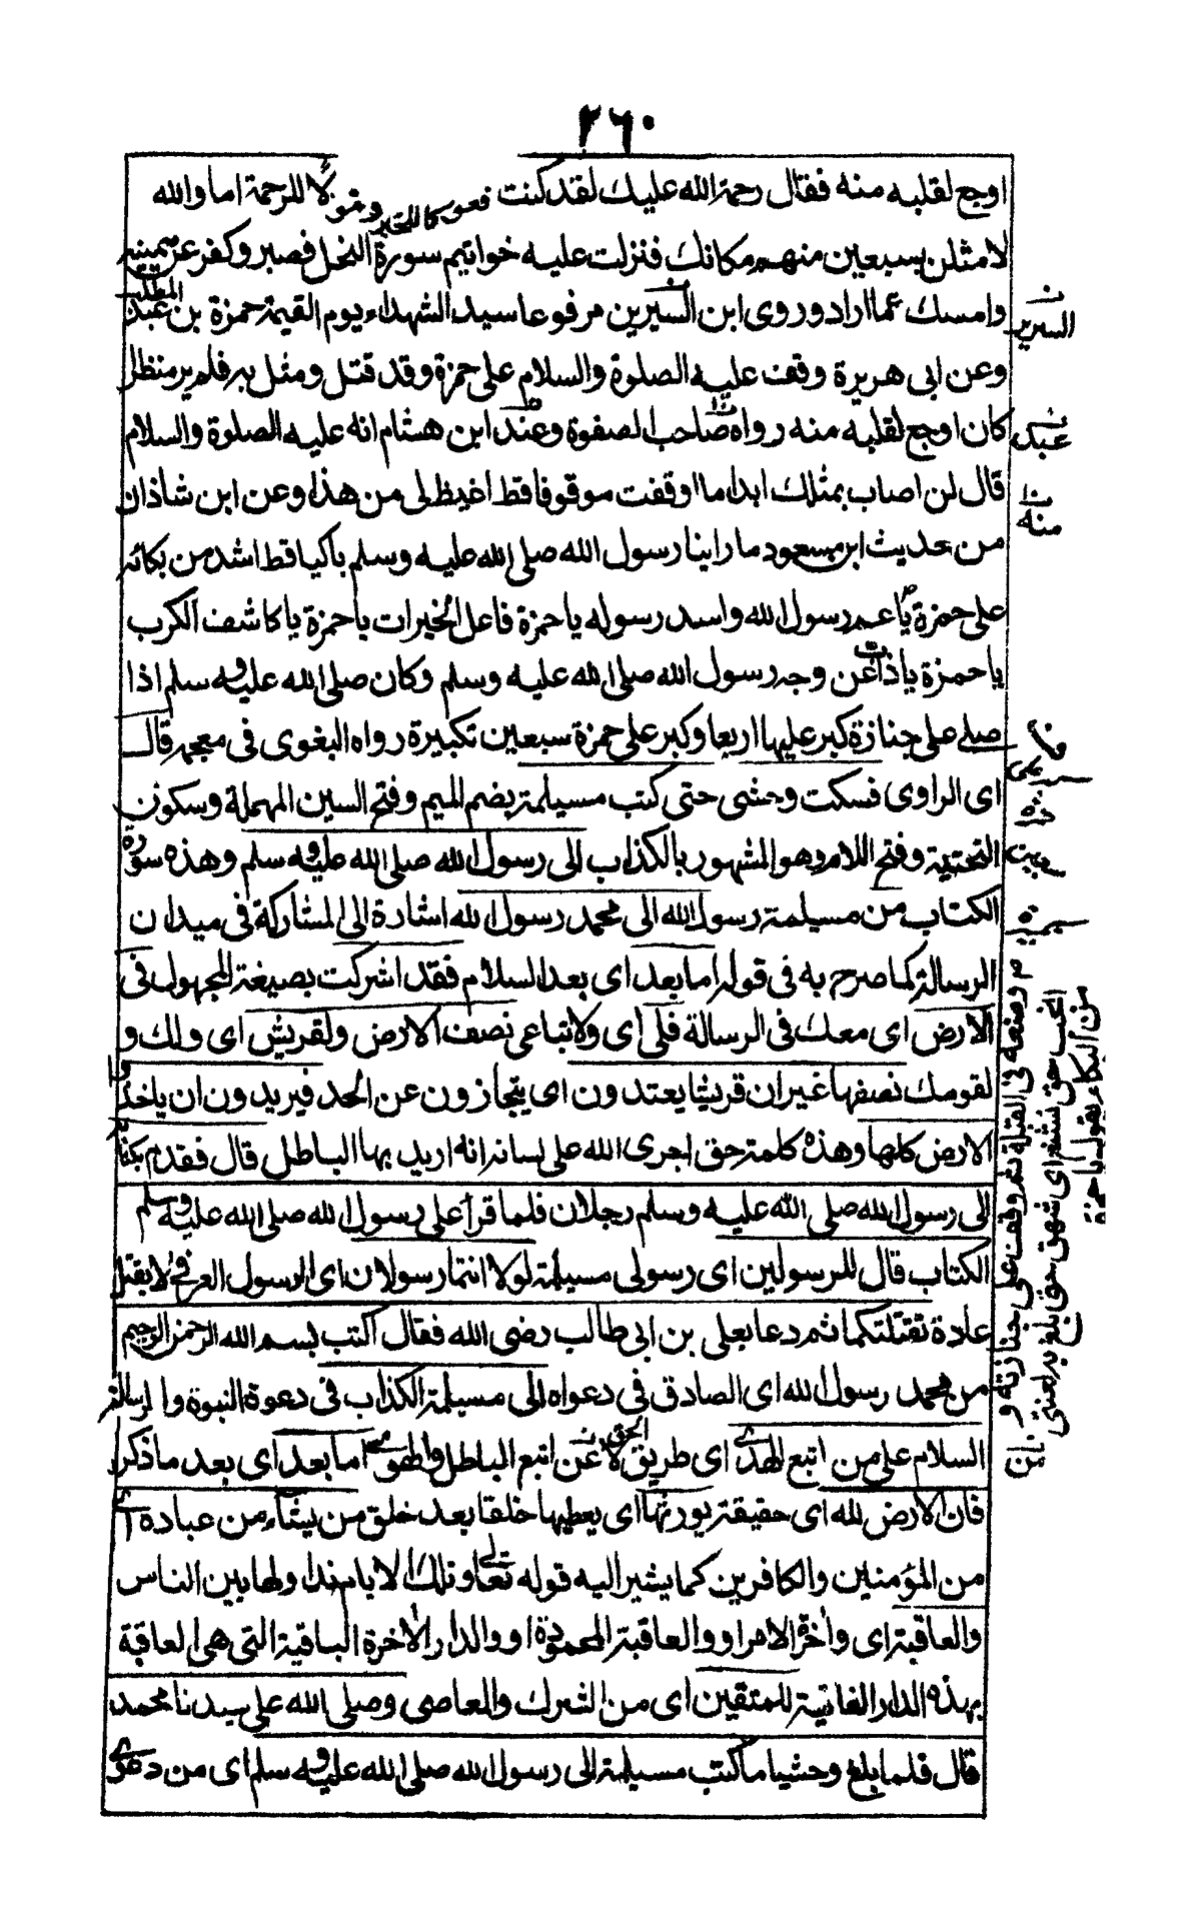 ٢٦٠
اوجع لقلبه منه فقال رحمة الله عليك لقد كنت فعولا للخير وصولا للرحمة اما والله
لامثلن بسبعين منهم مكانك فنزلت عليه خواتيم سورة النحل فصبر وكفر عن يمينه
وامسك عما اراد وروى ابن السيرين مرفوعا سيد الشهداء يوم القيمة حمزة بن عبد المطلب
وعن ابى هريرة وقف عليه الصلوة والسلام على حمزة وقد قتل ومثل به فلم ير منظرا
كان اوجع لقلبه منه رواه صاحب الصفوة وعند ابن هشام انه عليه الصلوة والسلام
قال لن اصاب بمثلك ابدا ما اوقفت موقوفا قط اغيظ لى من هذا وعن ابن شاذان
من حديث ابن مسعود ما راينا رسول الله صلى الله عليه وسلم باكيا قط اشد من بكائه
على حمزة يا عم رسول الله واسد رسوله يا حمزة فاعل الخيرات يا حمزة يا كاشف الكرب
يا حمزة يا ذاب عن وجه رسول الله صلى الله عليه وسلم وكان صلى الله عليه وسلم اذا
صلى على جنازة كبر عليها اربعا وكبر على حمزة سبعين تكبيرة رواه البغوى فى معجمه قال
اى الراوى فسكت وحشى حتى كتب مسيلمة بضم الميم وفتح السين المهملة وسكون
التحتية وفتح اللام وهو المشهور بالكذاب الى رسول الله صلى الله عليه وسلم وهذه سورة
الكتاب من مسيلمة رسول الله الى محمد رسول الله اشارة الى المشاركة فى ميدان
الرسالة كما صرح به فى قوله اما بعد اى بعد السلام فقد اشركت بصيغة المجهول فى
الارض اى معك فى الرسالة فلى اى ولاتباعى نصف الارض ولقريش اى ولك و
لقومك نصفها غير ان قريشا يعتدون اى يتجازون عن الحد فيريدون ان ياخذوا
الارض كلها وهذه كلمة حق اجرى الله على لسانه انه اريد بها الباطل قال فقدم بكتابه
الى رسول الله صلى الله عليه وسلم رجلان فلما قرأ على رسول الله صلى الله عليه وسلم
الكتاب قال للرسولين اى رسولى مسيلمة لولا انتما رسولان اى الرسول العرفى لا يقتل
عادة تقتلتكما ثم دعا بعلى بن ابى طالب رضى الله فقال اكتب بسم الله الرحمن الرحيم
من محمد رسول الله اى الصادق فى دعواه الى مسيلمة الكذاب فى دعوة النبوة والرسالة
السلام على من اتبع الهدى اى طريق الحق لا عن اتبع الباطل والهوى اما بعد اى بعد ما ذكر
فان الارض لله اى حقيقة يورثها اى يعطيها خلقا بعد خلق من يشاء من عباده اى
من المؤمنين والكافرين كما يشير اليه قوله تعالى وتلك الايام نداولها بين الناس
والعاقبة اى واخرة الامر او والعاقبة المحمودة او والدار الاخرة الباقية التى هى العاقبة
بهذه الدار الفانية للمتقين اى من الشرك والمعاصى وصلى الله على سيدنا محمد
قال فلما بلغ وحشيا ما كتب مسيلمة الى رسول الله صلى الله عليه وسلم اى من دعوى
السيرين
عبد
منه
وضعه فى القبلة ثم وقف على جنازته و
انتحب حتى نشغ اى شهق حتى بلغ به الغشى
من البكاء يقول يا حمزة